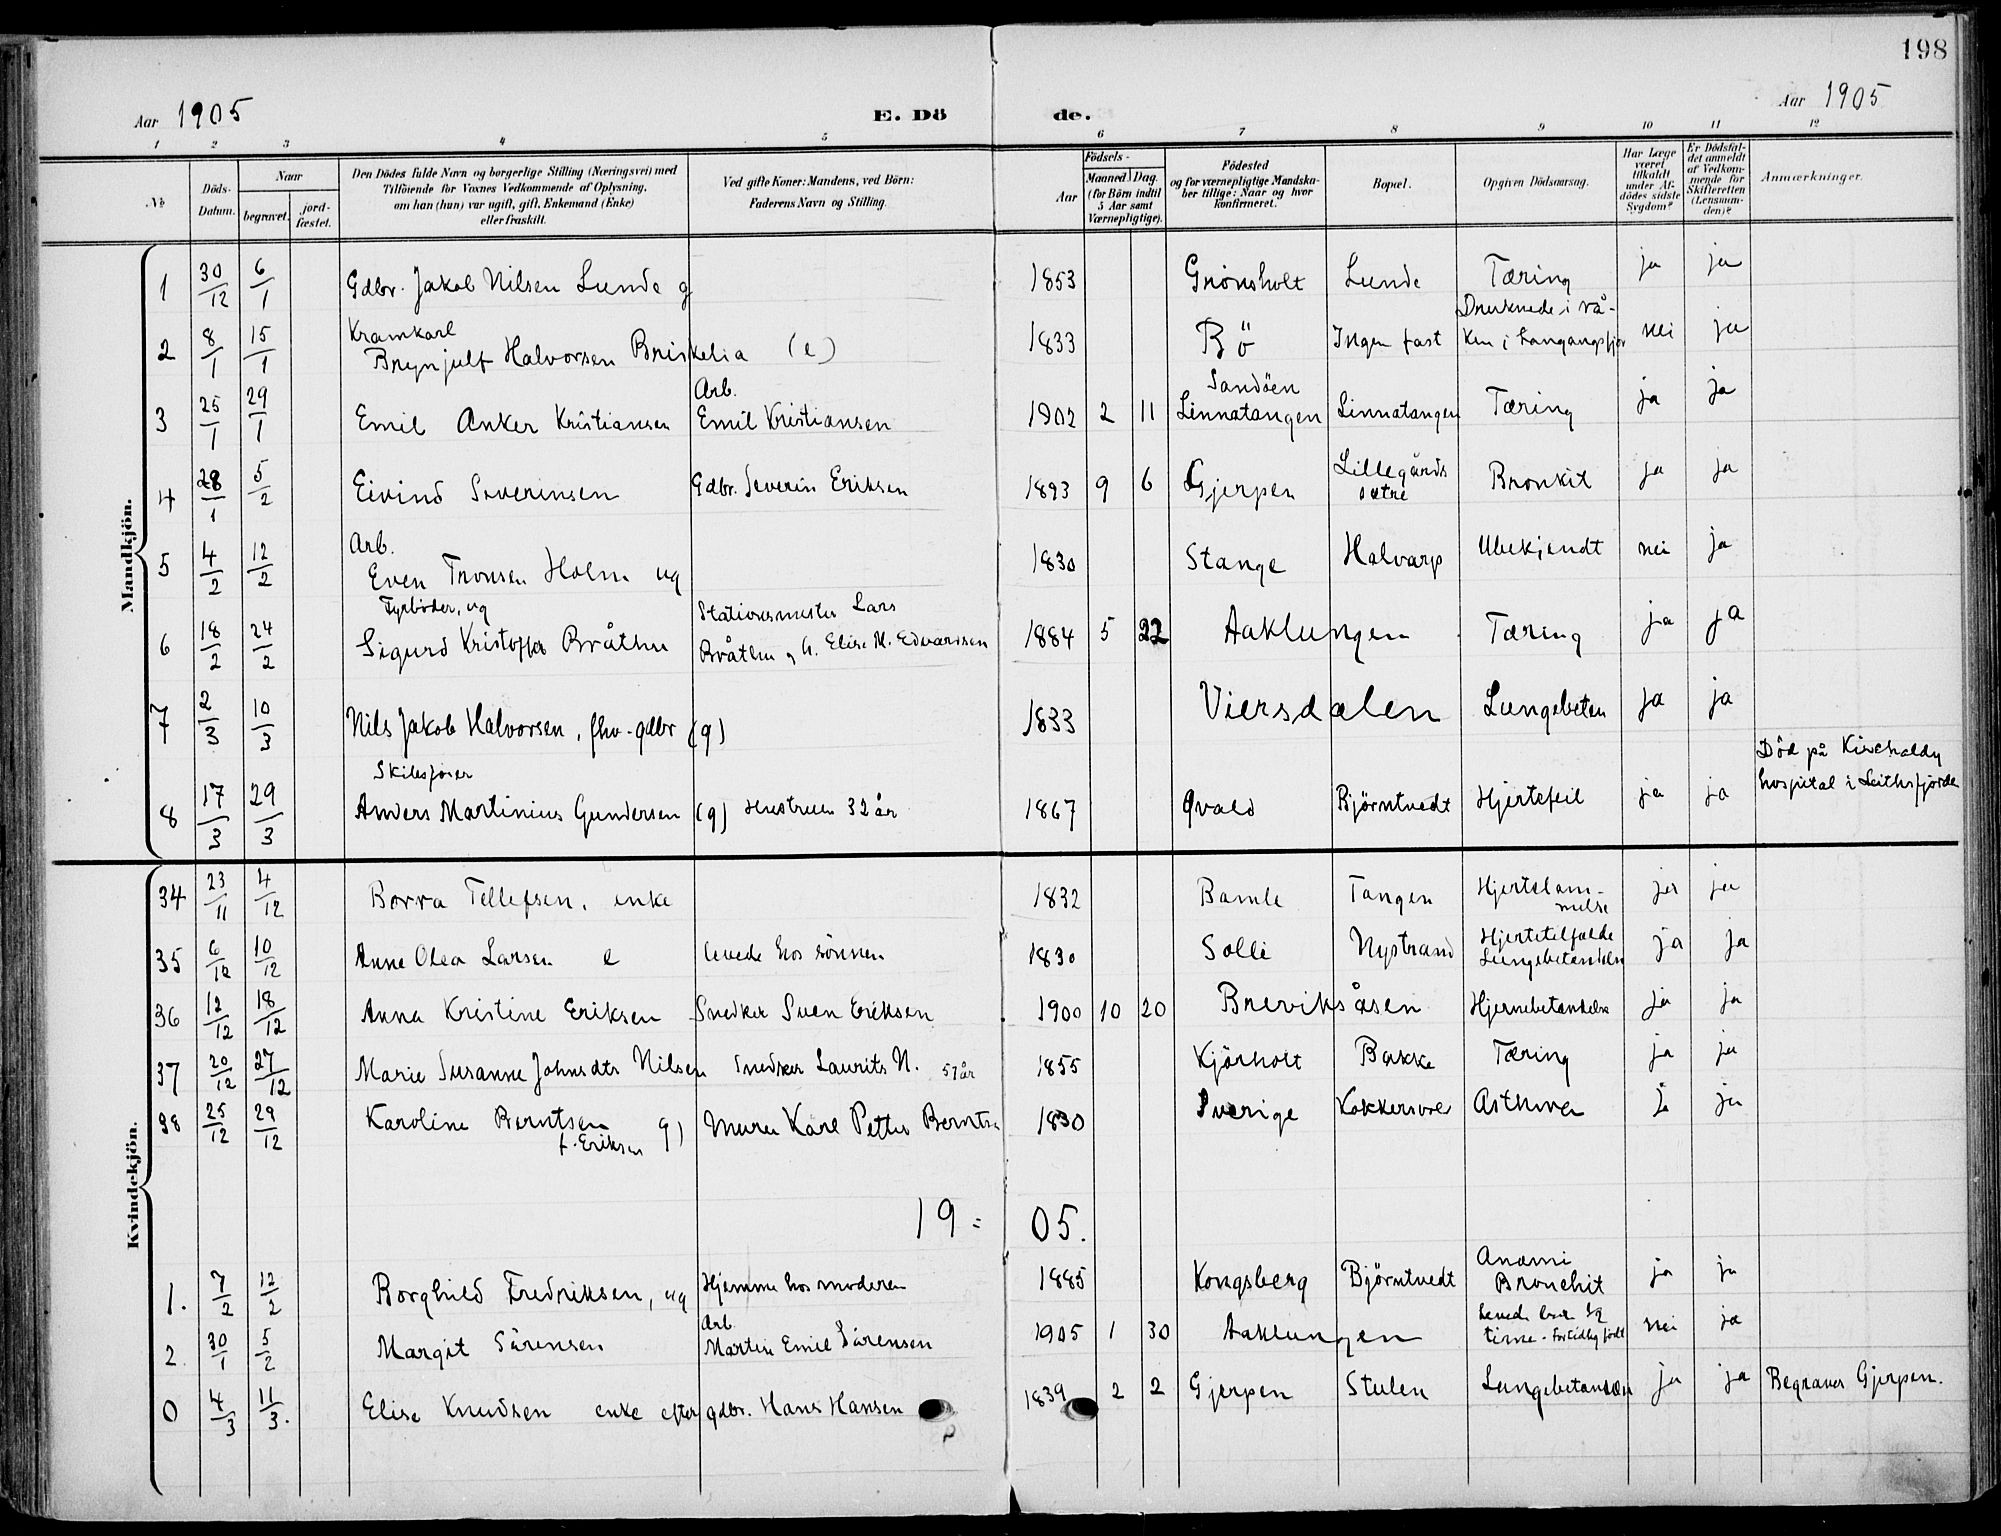 198
Aar 1905 E. Dö de. Aar 1905
1 2 3 4 5 6 7 8 9 10 11 12
No
Döds-Datum.
Naar
begravet.
jord-fæstet.
Den Dödes fulde Navn og borgerlige Stilling (Næringsvei) med
Tilföiende for Voxnes Vedkommende af Oplysning,
om han (hun) var ugift, gift, Enkemand (Enke)
eller fraskilt.
Ved gifte Koner: Mandens, ved Börn:
Faderens Navn og Stilling.
Födsels-
Aar
Maaned. Dag.
(for Börn indtil
5 Aar samt
Værnepligtige).
Födested
og for værnepligtige Mandska-
ber tillige: Naar og hvor
konfirmeret.
Bopæl.
Opgiven Dödsaarsag.
Har Læge
været
tilkaldt
under Af-
dödes sidste
Sygdom?
Er Dödsfal-
det anmeldt
af Vedkom-
mende for
Skifteretten
(Lensman-
den)?
Anmærkninger.
Mandkjön.
1 30/12 6/1 Gdbr. Jakob Nilsen Lunde g 1853 Grönsholt Lunde Tæring ja ja
2 8/1 15/1 Kramkarl
Brynjulf Halvorsen Briskelia (e) 1833 Bö Ingen fast Druknede i rå-
ken i Langangsfjor nei ja
3 25/1 29/1 Emil Anker Kristiansen Arb.
Emil Kristiansen 1902 2 11 Sandöen
Linnatangen Linnatangen Tæring ja ja
4 28/1 5/2 Eivind Severinsen Gdbr. Severin Eriksen 1893 9 6 Gjerpen Lillegårds
sætre Bronkit ja ja
5 4/2 12/2 Arb.
Even Tronsen Holm ug 1830 Stange Halvarp Ubekjendt nei ja
6 18/2 24/2 Fyrböder, ug
Sigurd Kristoffer Bråthen Stationsmester Lars
Bråthen g h. Elise M. Edvardsen 1884 5 22 Aaklungen Tæring ja ja
7 2/3 10/3 Nils Jakob Halvorsen, fhv. gdbr (g) 1833 Viersdalen Lungebeten ja ja
8 17/3 29/3 Skibsfører
Anders Martinius Gundersen (g) Hustruen 32 år 1867 Qvald Björntvedt Hjertefeil ja ja Död på Kirchaldy
hospital i Leithsfjorde
Kvindekjön.
34 23/11 4/12 Borra Tellefsen, enke 1832 Bamle Tangen Hjertelam-
melse ja ja
35 6/12 10/12 Anne Olea Larsen e levede hos sönnen 1830 Solli Nystrand Hjertetilfælde
Lungebetændelse ja ja
36 12/12 18/12 Anna Kristine Eriksen Snedker Sven Eriksen 1900 10 20 Breviksåsen Hjernebetændelse ja ja
37 20/12 27/12 Marie Susanne Johnsdtr Nilsen Snedker Laurits N. 51 år 1855 Kjörholt Bakke Tæring ja ja
38 25/12 29/12 Karoline Berntsen g)
f. Eriksen Murer Karl Petter Berntsen 1830 Sverige Kokkersvol Asthma ja ja
19 = 05.
1. 7/2 12/2 Borghild Fredriksen, ug Hjemme hos moderen 1885 Kongsberg Björntvedt Anæmi
Bronchit ja ja
2. 30/1 5/2 Margit Sörensen Arb.
Martin Emil Sörensen 1905 1 30 Aaklungen Levede bare 1/2
time - Fortidlig födt nei ja
0 4/3 11/3. Elise Knudsen enke efter gdbr. Hans Hansen 1839 2 2 Gjerpen Stulen Lungebetændelse ja ja Begraves Gjerpen.